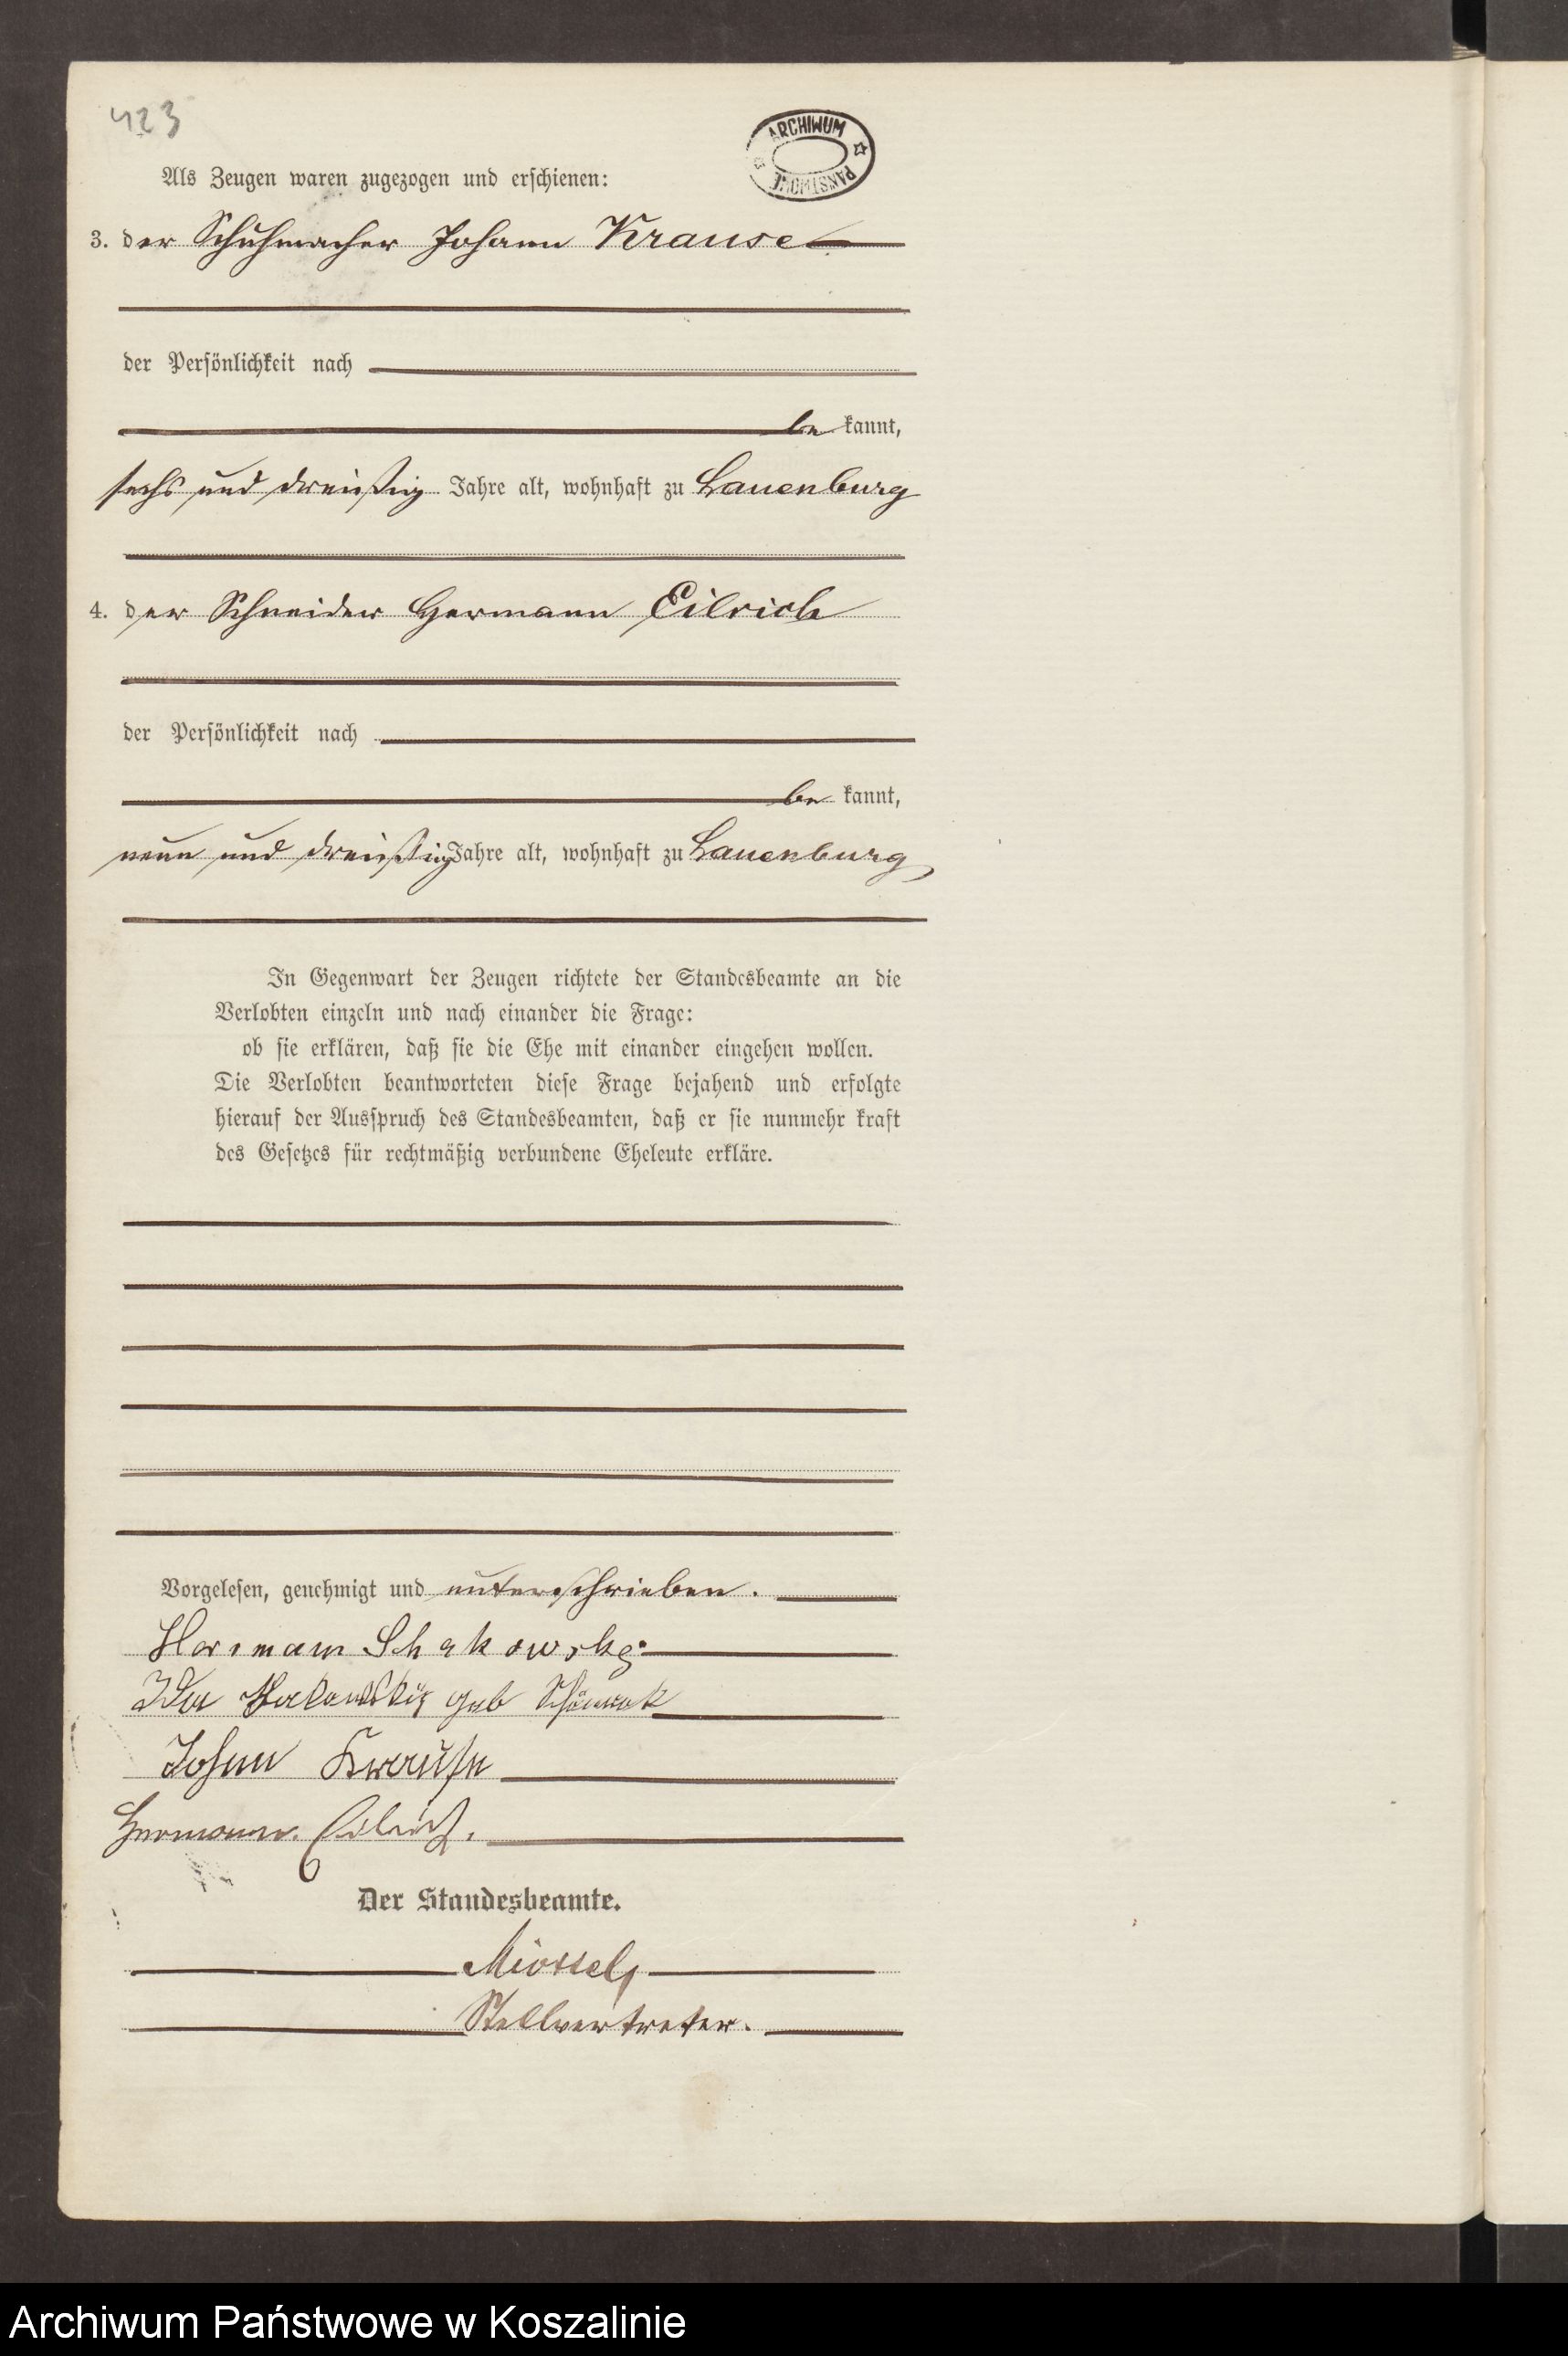 423
ARCHIWUM PAŃSTWOWE
Als Zeugen waren zugezogen und erschienen:
3. der Schuhmacher Johann Krause
der Persönlichkeit nach
be kannt,
sechs und dreißig Jahre alt, wohnhaft zu Lauenburg
4. der Schneider Hermann Eilrich
der Persönlichkeit nach
be kannt,
neun und dreißig Jahre alt, wohnhaft zu Lauenburg
In Gegenwart der Zeugen richtete der Standesbeamte an die
Verlobten einzeln und nach einander die Frage:
ob sie erklären, daß sie die Ehe mit einander eingehen wollen.
Die Verlobten beantworteten diese Frage bejahend und erfolgte
hierauf der Ausspruch des Standesbeamten, daß er sie nunmehr kraft
des Gesetzes für rechtmäßig verbundene Eheleute erkläre.
Vorgelesen, genehmigt und unterschrieben.
Herrmann
Ida geb
Johann Krause
Hermann Eilrich.
Der Standesbeamte.
Stellvertreter.
Archiwum Państwowe w Koszalinie